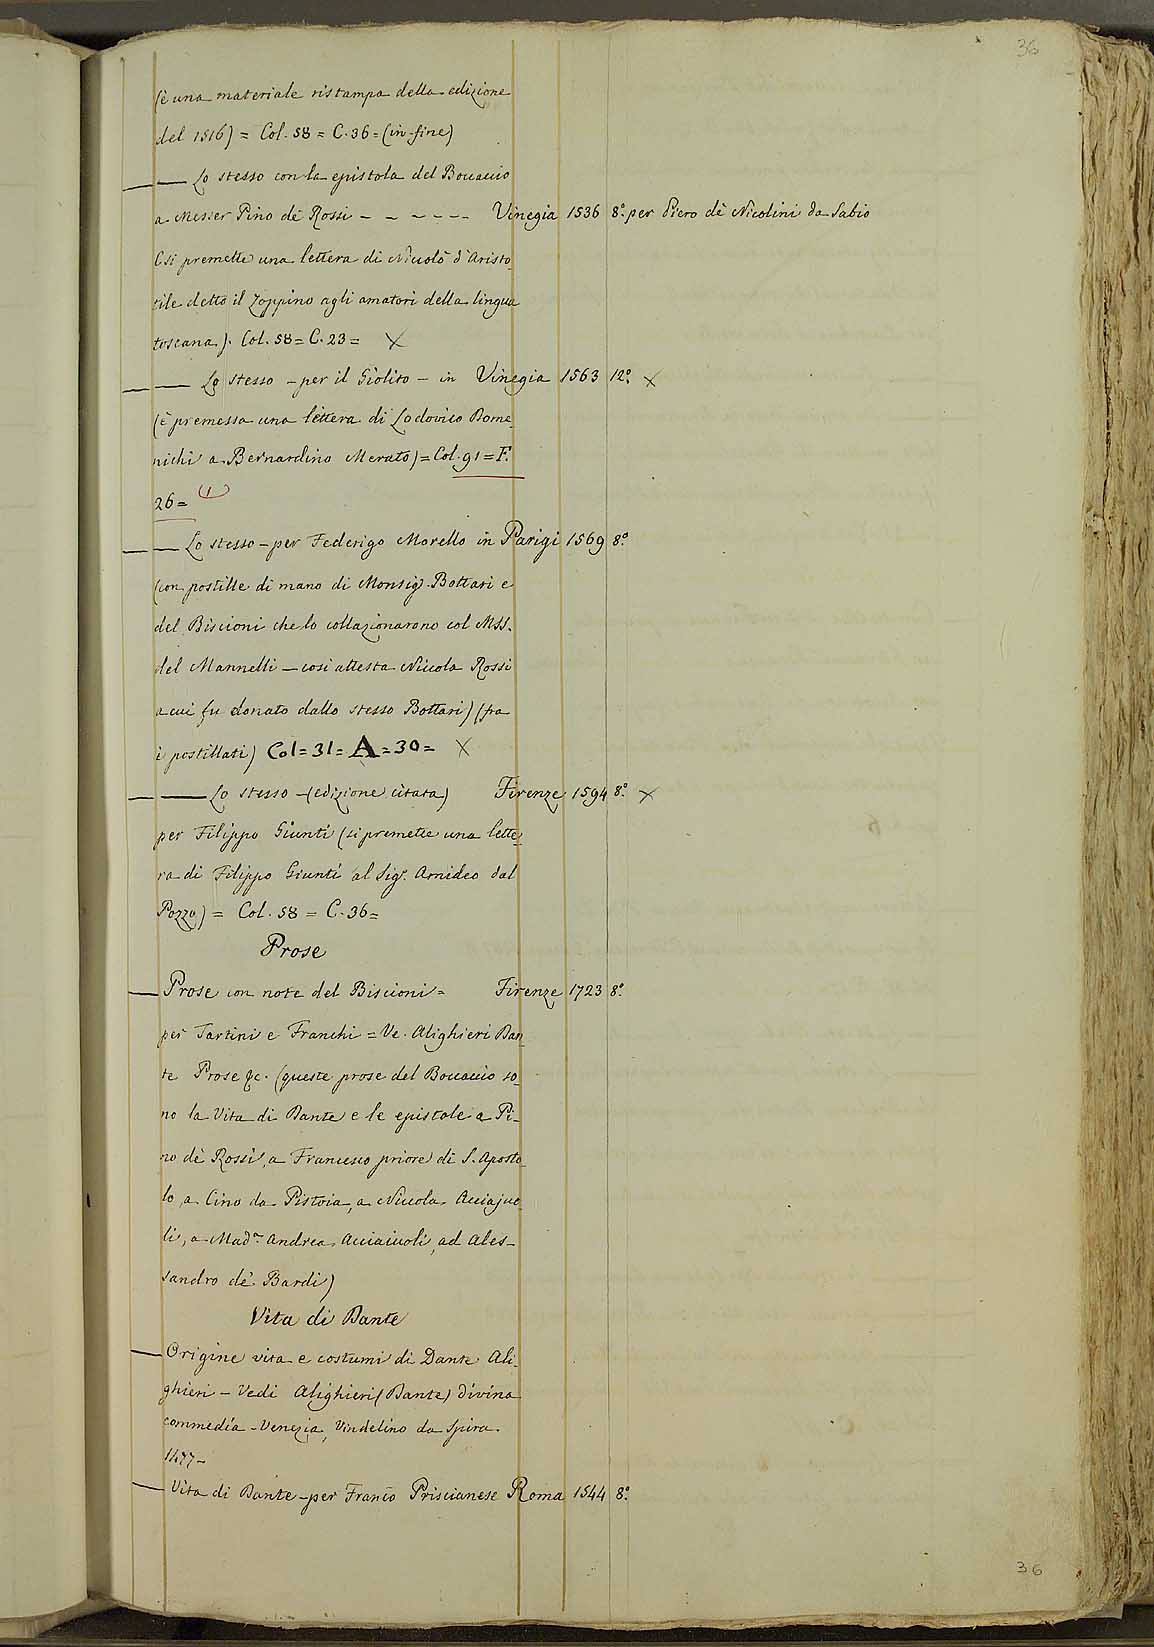 36
(è una materiale ristampa della edizione
del 1516) = Col. 58 = C. 36 = (in fine)
— — Lo stesso con la epistola del Boccaccio
a Messer Pino dè Rossi – – – – – – Vinegia 1536 8.° per Piero dè Nicolini da Sabio
(si premette una lettera di Niccolò d'Aristo_
tile detto il Zoppino agli amatori della lingua
toscana). Col. 58 = C. 23 = X
— — Lo stesso – per il Giolito – in Vinegia 1563 12.° X
(è premessa una lettera di Lodovico Dome_
nichi a Bernardino Merato) = Col. 91 = F.
26 = (1)
— — Lo stesso – per Federigo Morello in Parigi 1569 8.°
(con postille di mano di Monsig.r Bottari e
del Biscioni che lo collazionarono col MSS.
del Mannelli – così attesta Niccola Rossi
a cui fu donato dallo stesso Bottari) (fra
i postillati) Col = 31 = A = 30 = X
— — Lo stesso – (edizione citata) Firenze 1594 8.° X
per Filippo Giunti (si premette una lette_
ra di Filippo Giunti al Sig.r Amideo dal
Pozzo) = Col. 58 = C. 36 =
Prose
— Prose con note del Biscioni = Firenze 1723 8.°
per Tartini e Franchi = Ve. Alighieri Dan_
te Prose &c. (queste prose del Boccaccio so_
no la Vita di Dante e le epistole a Pi-
no dè Rossi, a Francesco priore di S. Aposto_
lo, a Cino da Pistoia, a Niccola Acciajuo_
li, a Mad.a Andrea Acciaiuoli, ad Ales-
sandro dè Bardi)
Vita di Dante
— Origine vita e costumi di Dante Ali_
ghieri – Vedi Alighieri (Dante) divina
commedia – Venezia, Vindelino da Spira.
1477 –
— Vita di Dante – per Franc.o Priscianese Roma 1544 8.°
36